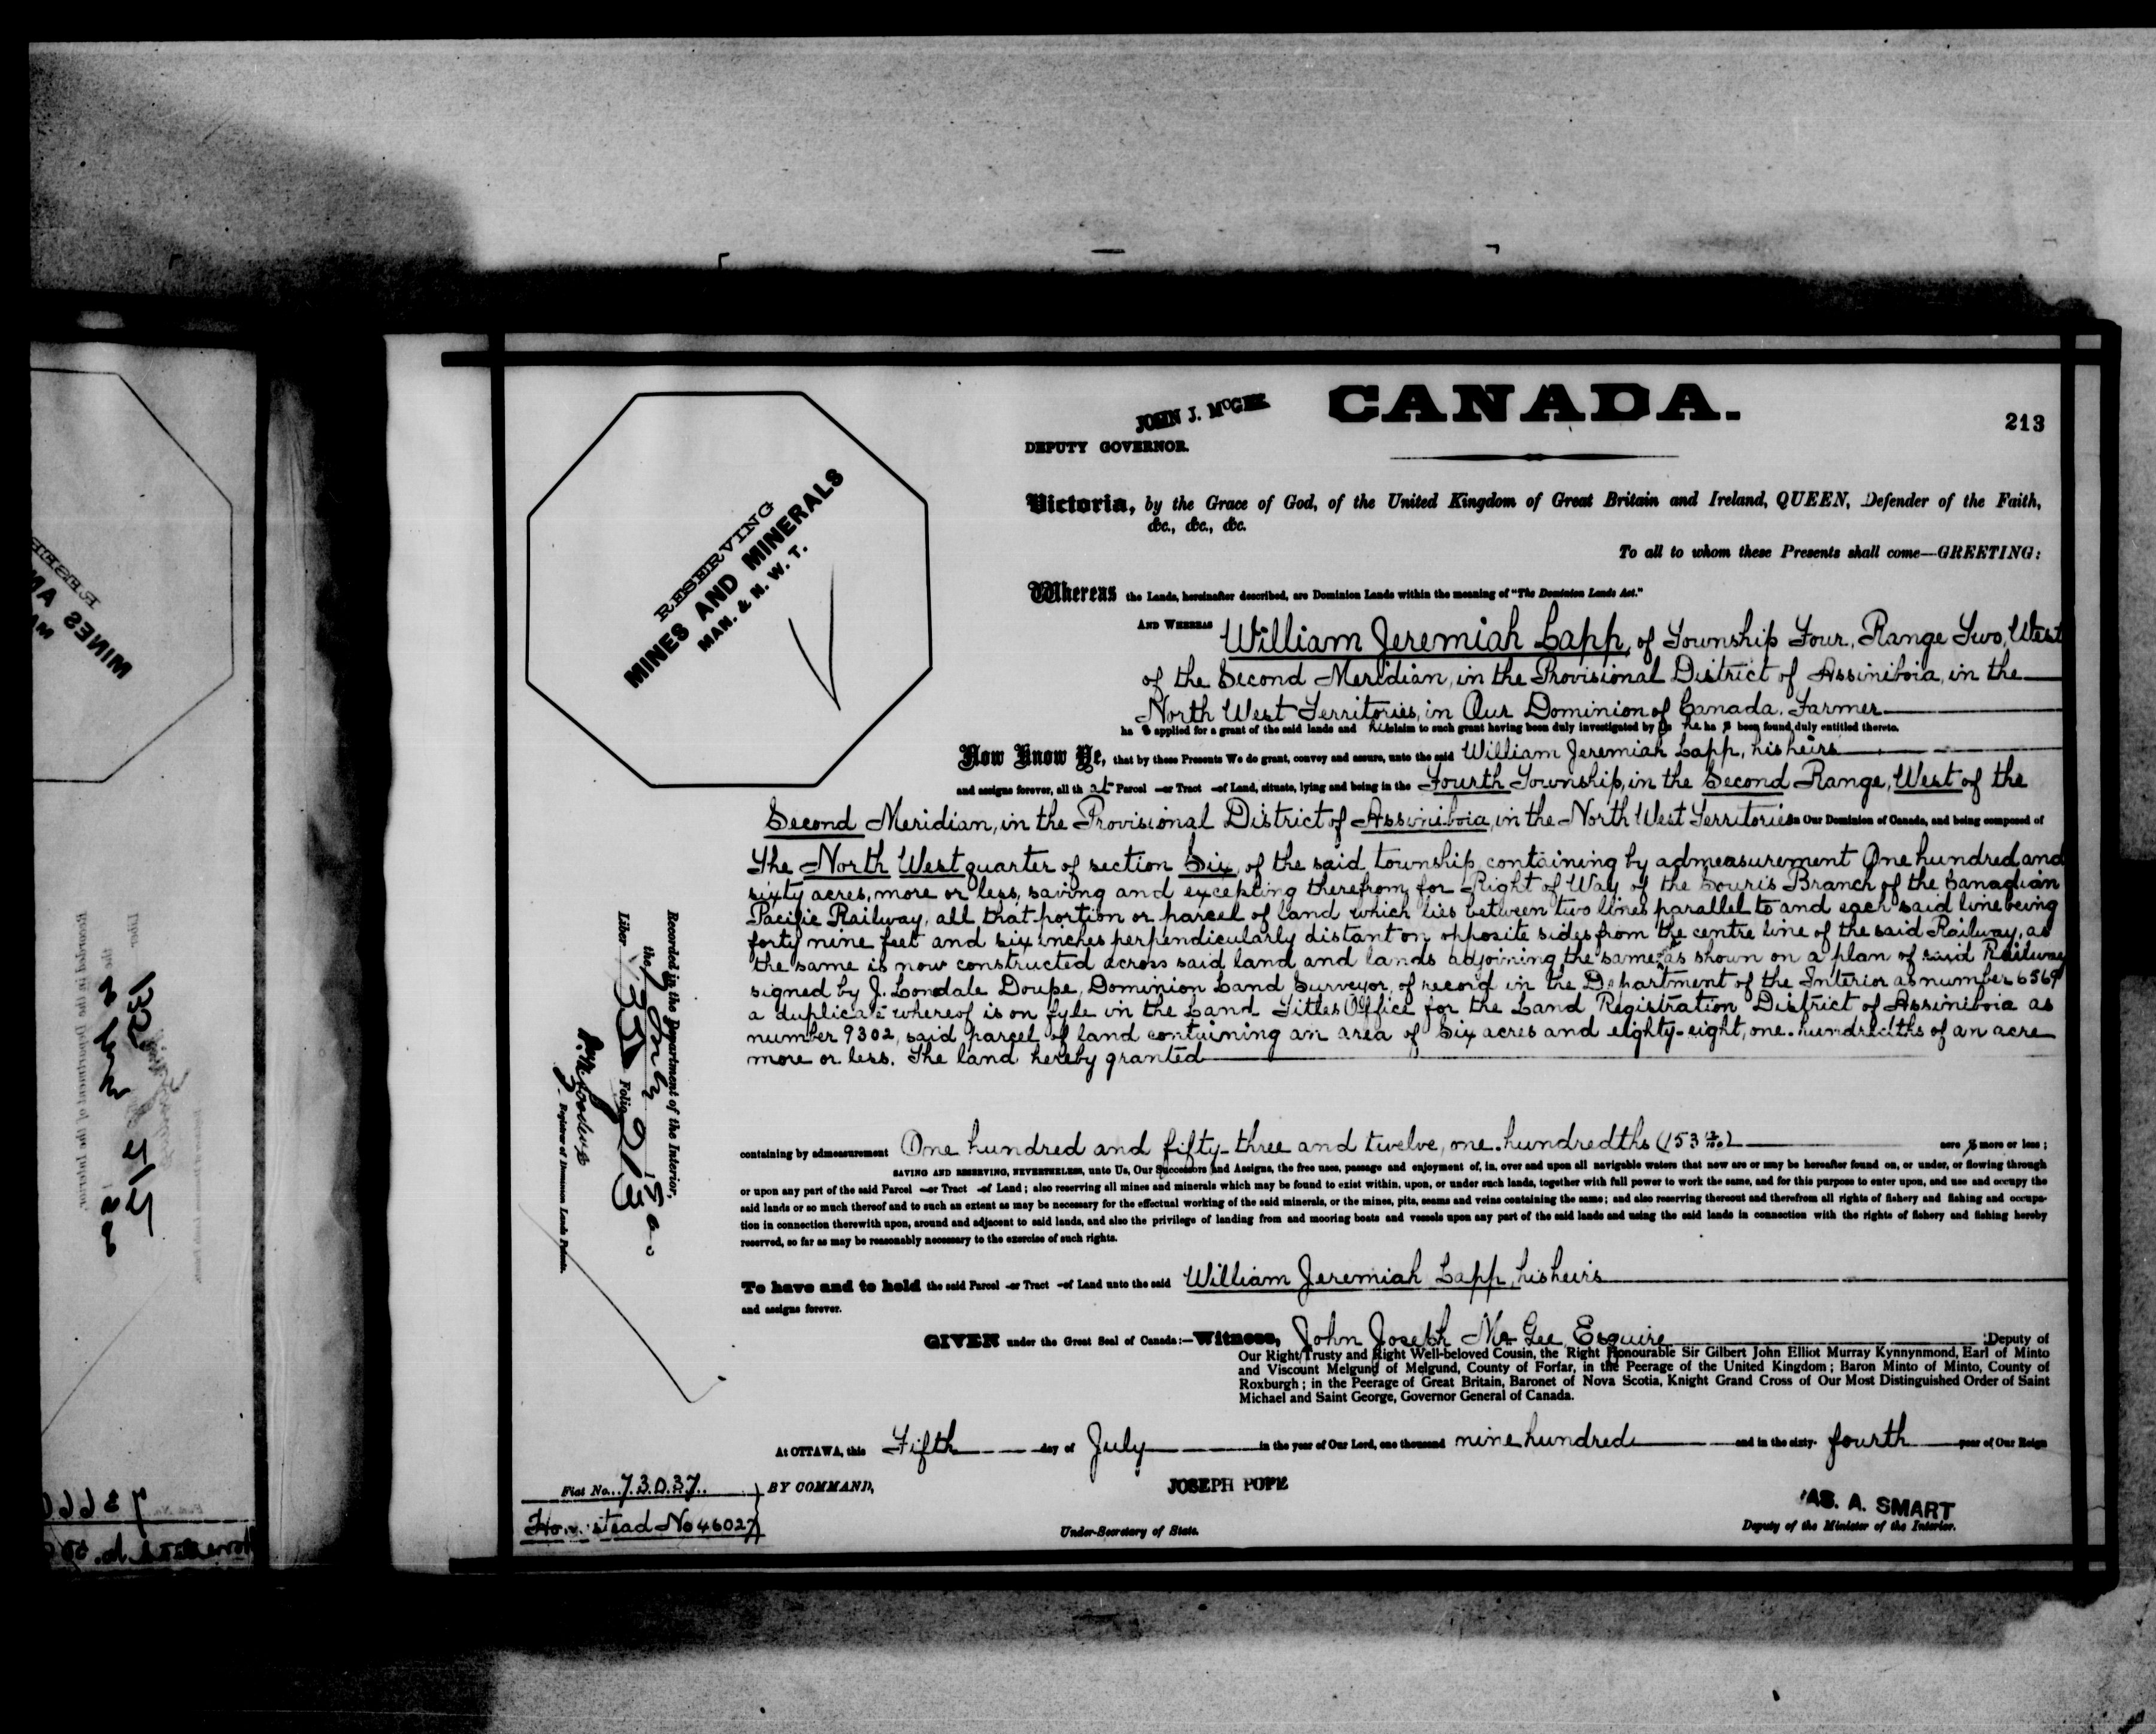 CANADA.
213
JOHN J. McGEE
DEPUTY GOVERNOR.
RESERVING
MINES AND MINERALS
MAN. & N. W. T.
Victoria, by the Grace of God, of the United Kingdom of Great Britain and Ireland, QUEEN, Defender of the Faith,
&c., &c., &c.
To all to whom these Presents shall come—GREETING:
Whereas the Lands, hereinafter described, are Dominion Lands within the meaning of "The Dominion Lands Act."
AND WHEREAS William Jeremiah Lapp, of Township Four, Range Two, West
of the Second Meridian, in the Provisional District of Assiniboia, in the
North West Territories, in Our Dominion of Canada. Farmer
ha s applied for a grant of the said lands and his claim to such grant having been duly investigated by Us he ha s been found duly entitled thereto.
Now Know Ye, that by these Presents We do grant, convey and assure, unto the said William Jeremiah Lapp, his heirs
and assigns forever, all th at Parcel or Tract of Land, situate, lying and being in the Fourth Township, in the Second Range, West of the
Second Meridian, in the Provisional District of Assiniboia, in the North West Territories in Our Dominion of Canada, and being composed of
The North West quarter of section Six, of the said township, containing by admeasurement One hundred and
sixty acres, more or less, saving and excepting therefrom, for Right of Way of the Souris Branch of the Canadian
Pacific Railway, all that portion or parcel of land which lies between two lines parallel to and each said line being
forty nine feet and six inches perpendicularly distant on opposite sides from the centre line of the said Railway, as
the same is now constructed across said land and lands adjoining the same as shown on a plan of said Railway
signed by J. Londale Doupe, Dominion Land Surveyor, of record in the Department of the Interior as number 6569
a duplicate whereof is on fyle in the Land Titles Office for the Land Registration District of Assiniboia as
number 9302, said parcel of land containing an area of Six acres and eighty-eight, one-hundredths of an acre
more or less. The land hereby granted
containing by admeasurement One hundred and fifty-three and twelve, one-hundredths (153 12/100) acre s more or less;
SAVING AND RESERVING, NEVERTHELESS, unto Us, Our Successors and Assigns, the free uses, passage and enjoyment of, in, over and upon all navigable waters that now are or may be hereafter found on, or under, or flowing through
or upon any part of the said Parcel or Tract of Land; also reserving all mines and minerals which may be found to exist within, upon, or under such lands, together with full power to work the same, and for this purpose to enter upon, and use and occupy the
said lands or so much thereof and to such an extent as may be necessary for the effectual working of the said minerals, or the mines, pits, seams and veins containing the same; and also reserving thereout and therefrom all rights of fishery and fishing and occupa-
tion in connection therewith upon, around and adjacent to said lands, and also the privilege of landing from and mooring boats and vessels upon any part of the said lands and using the said lands in connection with the rights of fishery and fishing hereby
reserved, so far as may be reasonably necessary to the exercise of such rights.
To have and to hold the said Parcel or Tract of Land unto the said William Jeremiah Lapp, his heirs
and assigns forever.
GIVEN under the Great Seal of Canada:—Witness, John Joseph McGee Esquire Deputy of
Our Right Trusty and Right Well-beloved Cousin, the Right Honourable Sir Gilbert John Elliot Murray Kynnynmond, Earl of Minto
and Viscount Melgund of Melgund, County of Forfar, in the Peerage of the United Kingdom; Baron Minto of Minto, County of
Roxburgh; in the Peerage of Great Britain, Baronet of Nova Scotia, Knight Grand Cross of Our Most Distinguished Order of Saint
Michael and Saint George, Governor General of Canada.
At OTTAWA, this Fifth day of July in the year of Our Lord, one thousand nine hundred and in the sixty-fourth year of Our Reign
BY COMMAND,
JOSEPH POPE
Under-Secretary of State.
JAS. A. SMART
Deputy of the Minister of the Interior.
Fiat No. 73037
Homestead No 46027
Recorded in the Department of the Interior,
the 9 July
Liber 135 Folio 213
Registrar of Dominion Lands Patents.